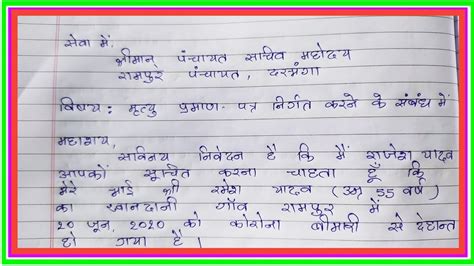 सेवा में,
श्रीमान् पंचायत सचिव महोदय
रामपुर पंचायत, दरभंगा
विषय: मृत्यु प्रमाण-पत्र निर्गत करने के संबंध में
महाशय,
सविनय निवेदन है कि मैं राजेश यादव
आपकों सूचित करना चाहता हूँ कि
मेरे भाई श्री रमेश यादव (उम्र 55 वर्ष)
का खानदानी गाँव रामपुर में
20 जून, 2020 को कोरोना बीमारी से देहान्त
हो गया है।